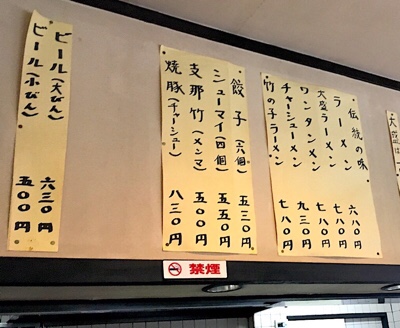 大盛は
伝統の味
ラーメン 六八〇円
大盛ラーメン 七八〇円
ワンタンメン 七八〇円
チャーシューメン 九三〇円
竹の子ラーメン 七八〇円
餃子(六個) 五三〇円
シューマイ(四個) 五五〇円
支那竹(メンマ) 五〇〇円
焼豚(チャーシュー) 八三〇円
ビール(大びん) 六三〇円
ビール(小びん) 五〇〇円
禁煙